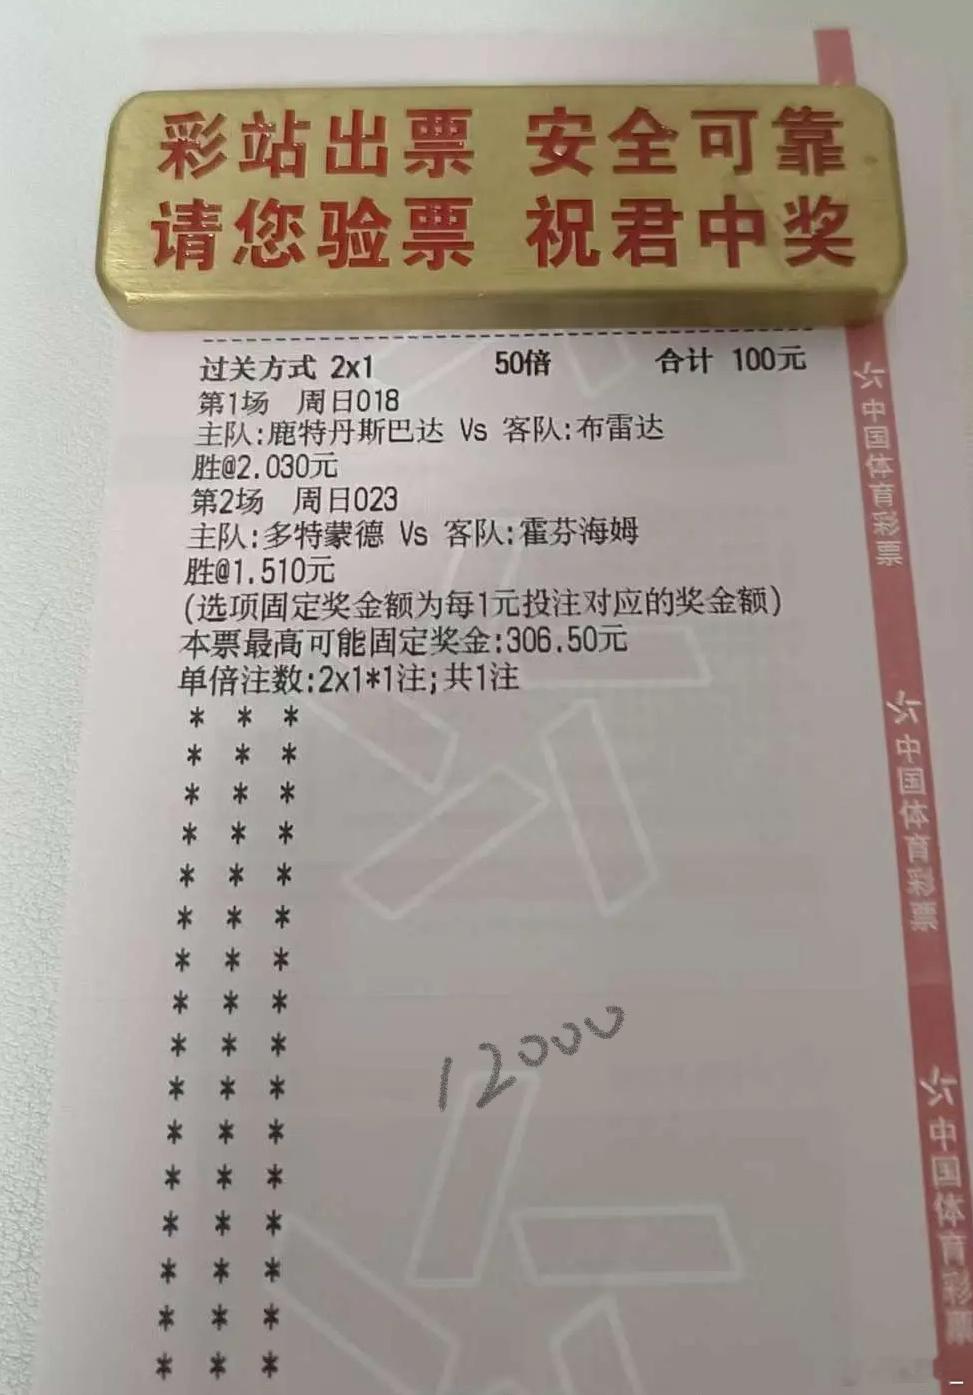 彩站出票 安全可靠
请您验票 祝君中奖
过关方式 2x1 50倍 合计 100元
第1场 周日018
主队:鹿特丹斯巴达 Vs 客队:布雷达
胜@2.030元
第2场 周日023
主队:多特蒙德 Vs 客队:霍芬海姆
胜@1.510元
(选项固定奖金额为每1元投注对应的奖金额)
本票最高可能固定奖金:306.50元
单倍注数:2x1*1注;共1注
* * *
* * *
* * *
* * *
* * *
* * *
* * *
* * *
* * *
* * *
* * *
* * *
* * *
* * *
* * *
* * *
12000
中国体育彩票
中国体育彩票
中国体育彩票